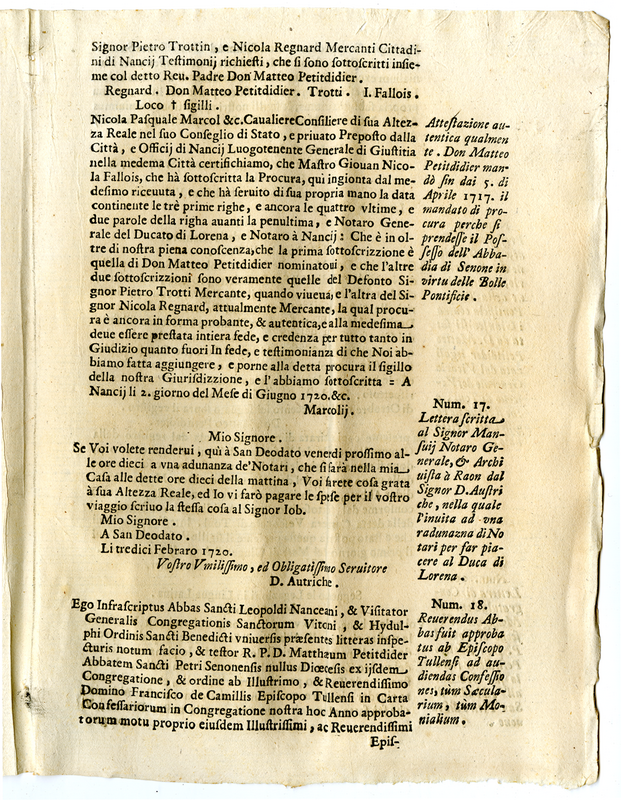 Signor Pietro Trottin, e Nicola Regnard Mercanti Cittadi-
ni di Nancij Teſtimonij richieſti, che ſi ſono ſottoſcritti inſie-
me col detto Reu. Padre Don Matteo Petitdidier.
Regnard. Don Matteo Petitdidier. Trotti. I. Fallois.
Loco † ſigilli.
Nicola Paſquale Marcol &c. Caualiere Conſiliere di ſua Altez-
za Reale nel ſuo Conſeglio di Stato, e priuato Prepoſto dalla
Città, e Officij di Nancij Luogotenente Generale di Giuſtitia
nella medema Città certifichiamo, che Maſtro Giouan Nico-
la Fallois, che hà ſottoſcritta la Procura, qui ingionta dal me-
deſimo riceuuta, e che hà ſeruito di ſua propria mano la data
continente le trè prime righe, e ancora le quattro vltime, e
due parole della righa auanti la penultima, e Notaro Gene-
rale del Ducato di Lorena, e Notaro à Nancij: Che è in ol-
tre di noſtra piena conoſcenza, che la prima ſottoſcrizzione è
quella di Don Matteo Petitdidier nominatoui, e che l'altre
due ſottoſcrizzioni ſono veramente quelle del Defonto Si-
gnor Pietro Trotti Mercante, quando viueua, e l'altra del Si-
gnor Nicola Regnard, attualmente Mercante, la qual procu-
ra è ancora in forma probante, & autentica, e alla medeſima
deue eſſere preſtata intiera fede, e credenza per tutto tanto in
Giudizio quanto fuori In fede, e teſtimonianza di che Noi ab-
biamo fatta aggiungere, e porne alla detta procura il ſigillo
della noſtra Giuriſdizzione, e l'abbiamo ſottoſcritta = A
Nancij li 2. giorno del Meſe di Giugno 1720. &c.
Marcolij.
Atteſtazione au-
tentica qualmen
te. Don Matteo
Petitdidier man-
dò ſin dai 5. di
Aprile 1717. il
mandato di pro-
cura perche ſi
prendeſſe il Poſ-
ſeſſo dell' Abba-
dia di Senone in
virtu delle Bolle
Pontificie.
Mio Signore.
Se Voi volete renderui, quì à San Deodato venerdi proſſimo al-
le ore dieci a vna adunanza de'Notari, che ſi farà nella mia
Caſa alle dette ore dieci della mattina, Voi farete coſa grata
à ſua Altezza Reale, ed Io vi farò pagare le ſpeſe per il voſtro
viaggio ſcriuo la ſteſſa coſa al Signor Iob.
Mio Signore.
A San Deodato.
Li tredici Febraro 1720.
Voſtro Vmiliſſimo, ed Obligatiſſimo Seruitore
D. Autriche.
Num. 17.
Lettera ſcritta
al Signor Man-
ſuij Notaro Ge-
nerale, & Archi
uiſta à Raon dal
Signor D. Auſtri
che, nella quale
l'inuita ad vna
radunazna di No
tari per far pia-
cere al Duca di
Lorena.
Ego Infraſcriptus Abbas Sancti Leopoldi Nanceani, & Viſitator
Generalis Congregationis Sanctorum Vitoni, & Hydul-
phi Ordinis Sancti Benedicti vniuerſis præſentes litteras inſpe-
cturis notum facio, & teſtor R. P. D. Matthæum Petitdider
Abbatem Sancti Petri Senonenſis nullus Diœceſis ex ijſdem
Congregatione, & ordine ab Illuſtrimo, & Reuerendiſſimo
Domino Franciſco de Camillis Epiſcopo Tullenſi in Carta
Confeſſariorum in Congregatione noſtra hoc Anno approba-
torum motu proprio eiuſdem Illuſtriſſimi, ac Reuerendiſſimi
Epiſ-
Num. 18.
Reuerendus Ab-
bas fuit approba
tus ab Epiſcopo
Tullenſi ad au-
diendas Confeſſio
nes, tùm Sæcula-
rium, tùm Mo-
nialium.